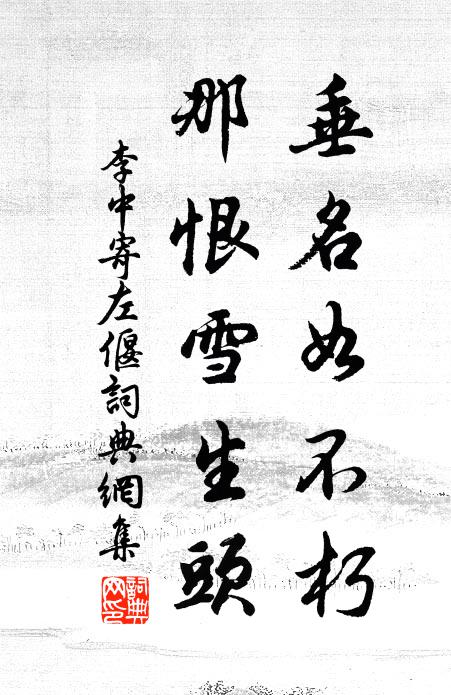 垂名如不朽
那恨雪生頭
李中寄左偃詞典網集
詞典网印